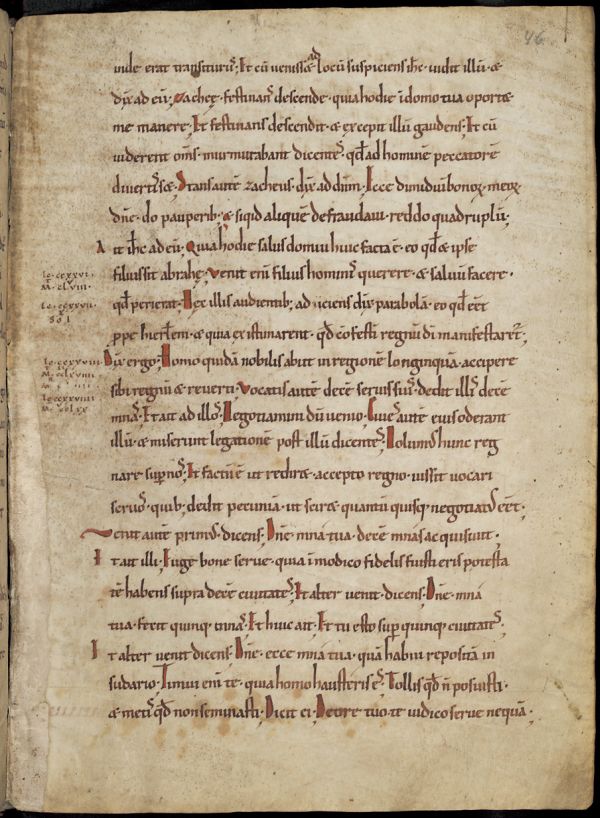 46
inde erat transiturus; Et cū venisset ad locū suspiciens ihc· vidit illū· &
dix̄ ad eū; Zachee· festinans descende· quia hodie ī domo tua oport&
me manere; Et festinans descendit· & excepit illū gaudens; Et cū
viderent om̄s· murmurabant dicentes qd̄ ad hominē peccatorē
divertisset; Stans autē zacheus· dix̄ ad dn̄m; Ecce dimidiū bonorū meorū
dn̄e· do pauperib; & siqid aliquē defraudavi· reddo quadruplū;
Ait ihc ad eū; Quia hodie salus domui huic facta ē· eo qd̄ & ipse
filius sit abrahę; Venit enī filius hominis querere· & salvū facere·
qd̄ perierat; Hęc illis audientib; adiciens dix̄ parabolā· eo qd̄ eēt
ppe hierlem· & quia existimarent· qd̄ confestī regnū dī manifestaretur;
Dix̄ ergo; Homo quidā nobilis abiit in regionē longinquā· accipere
sibi regnū & reverti; Vocatis autē decē servis suis· dedit illis decē
mnas; Et ait ad illos; Negotiamini dū venio; Cives autē eius oderant
illū· & miserunt legationē post illū dicentes; Nolumus hunc reg
nare sup nos; Et factū ē ut redir& accepto regno· iussit vocari
servos· quib; dedit pecuniā· ut scir& quantū quisq; negotiatus eēt·
Venit autē primus dicens; Dn̄e mna tua· decē mnas acquisivit;
Et ait illi; Euge bone serve· quia ī modico fidelis fuisti eris potesta
tē habens supra decē civitates; Et alter venit· dicens; Dn̄e· mna
tua· fecit quinq; mnas; Et huic ait; Et tu esto sup quinq; civitates;
Et alter venit dicens; Dn̄e· ecce mna tua· quā habui repositā in
sudario; Timui enī te· quia homo austeris es; Tollis qd̄ n̄ posuisti·
& metis qd̄ non seminasti; Dicit ei; De ore tuo te iudico serve nequā·